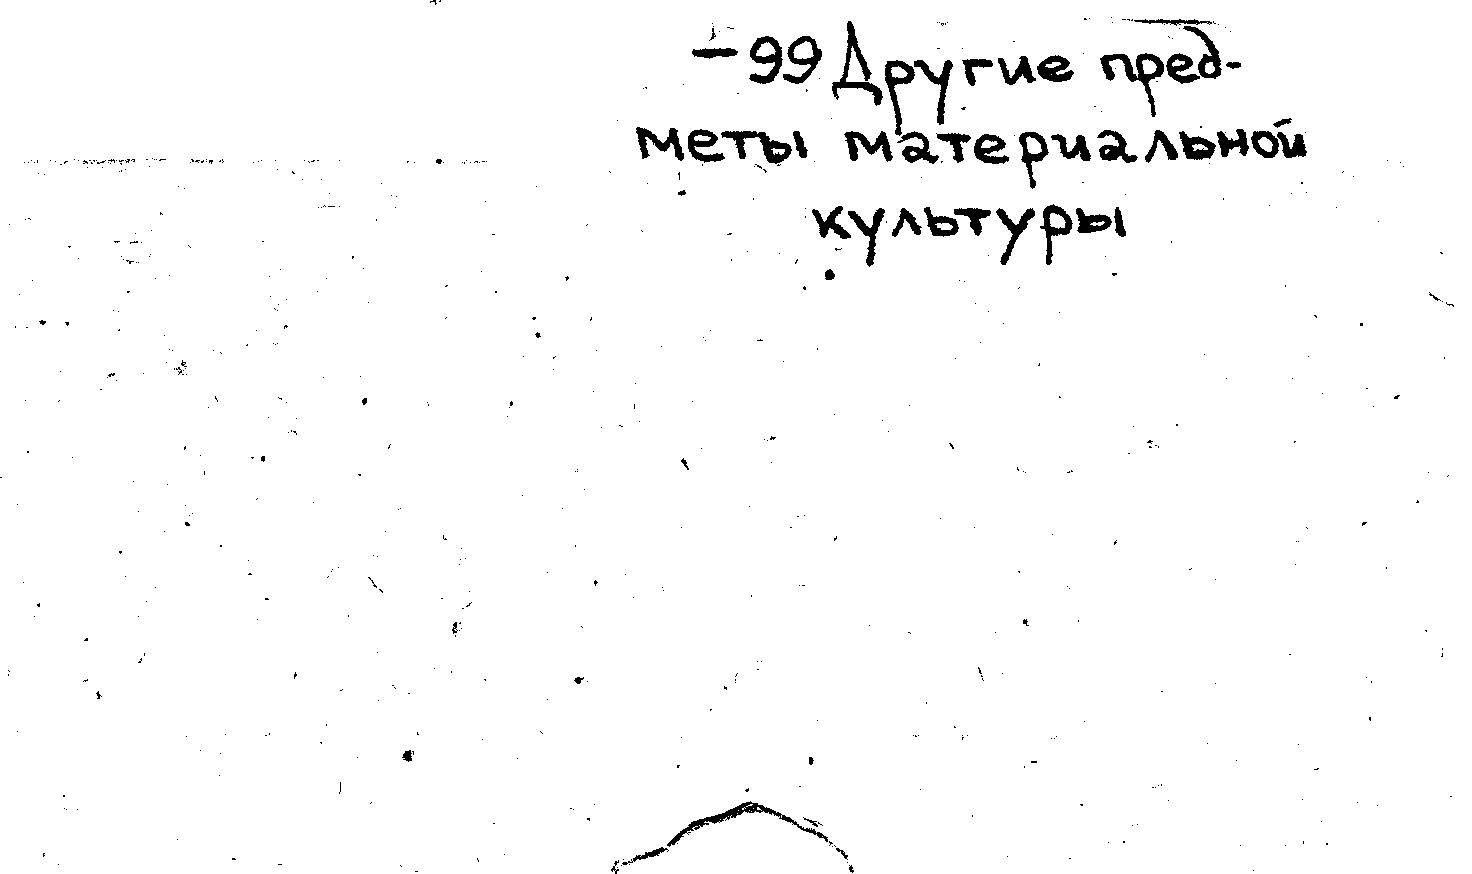 –99 Другие пред-
меты материальной
культуры